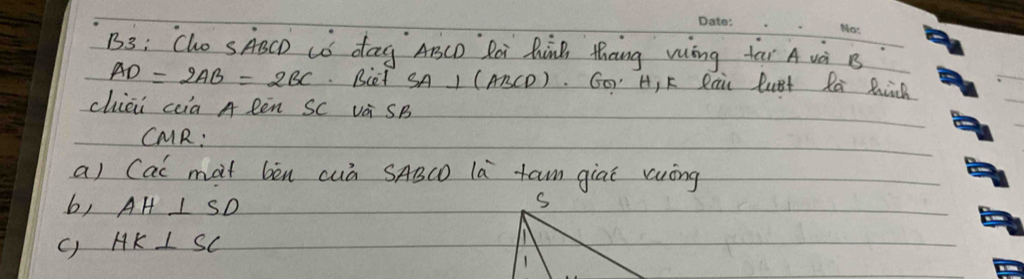 Date: No:
B3: Cho SABCD có đáy ABCD là hình thang vuông tại A và B
AD = 2AB = 2BC. Biết SA ⊥ (ABCD). Gọi H, K lần lượt là hình
chiếu của A lên SC và SB
CMR:
a) Các mặt bên của SABCD là tam giác vuông
b) AH ⊥ SD
c) HK ⊥ SC
S